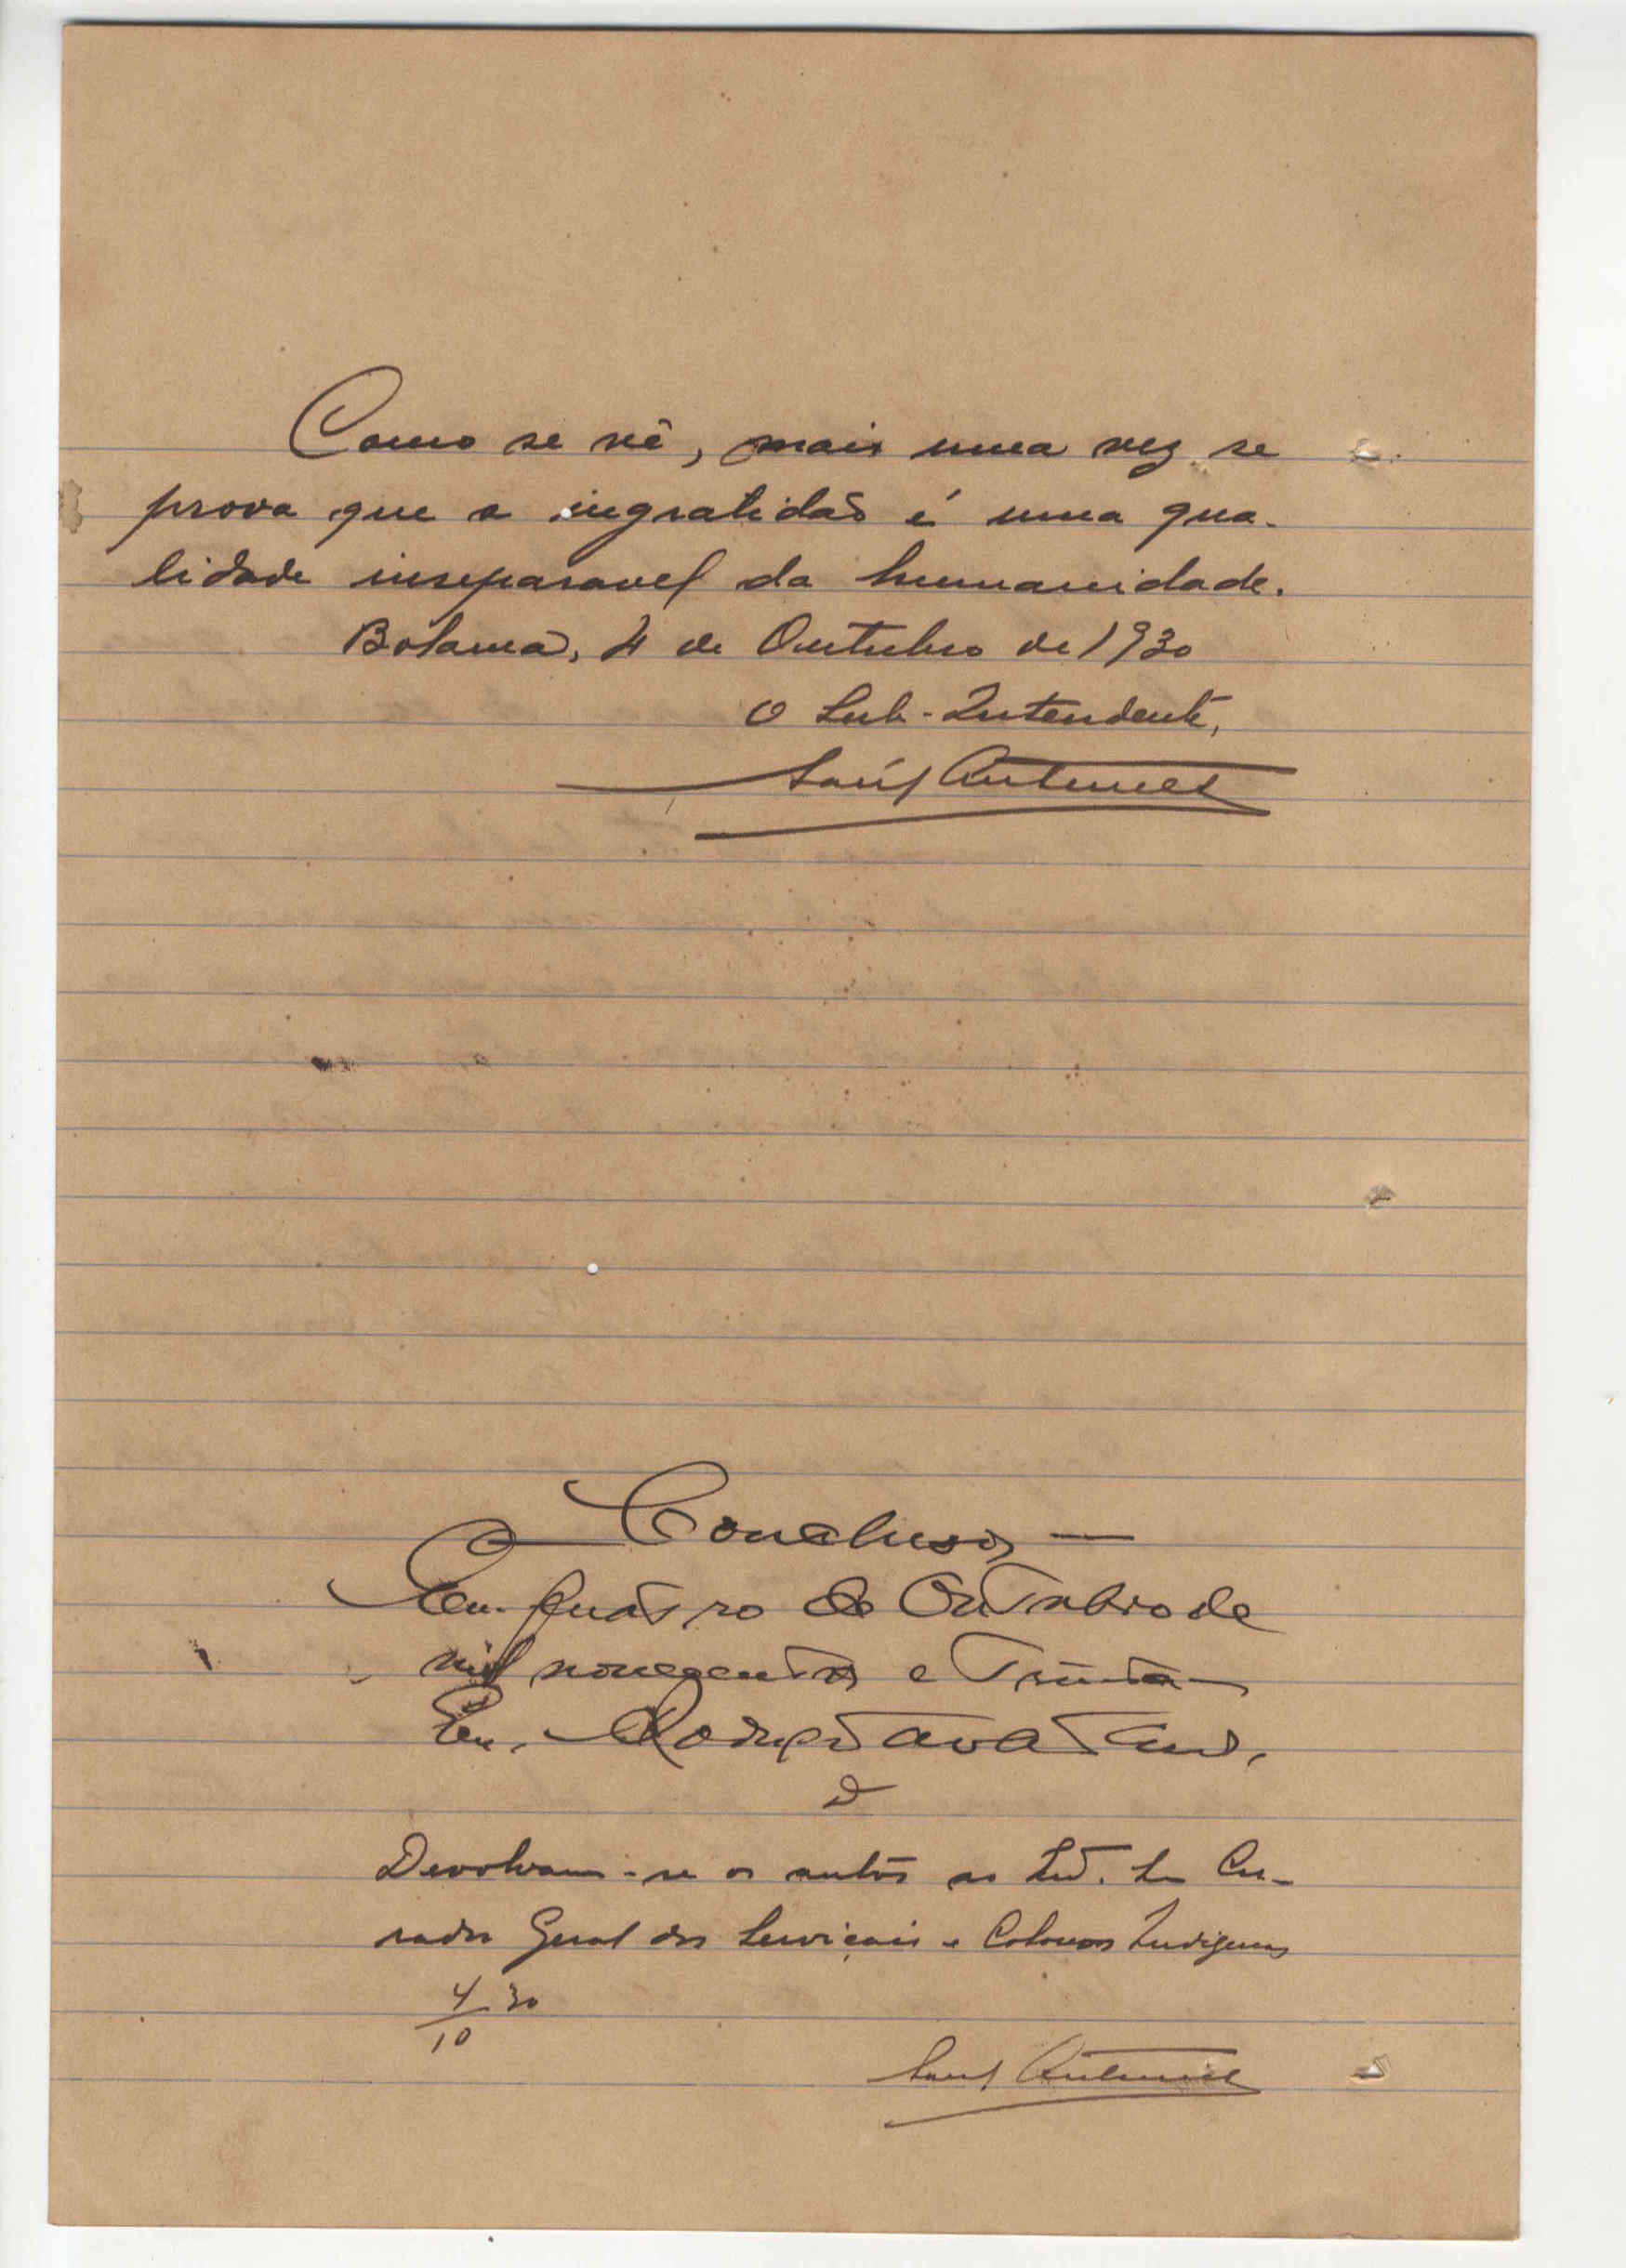 Como se vê, mais uma vez se
prova que a ingratidão é uma qua-
lidade inseparavel da humanidade.
Bolama, 4 de Outubro de 1930
O Sub-Intendente,
Antunes
Conclusos
Em quatro de Outubro de
mil novecentos e trinta
Eu,
D
Devolvam-se os autos ao Cu-
rador Geral dos Serviçais e Colonos Indigenas
4/10 30
Antunes